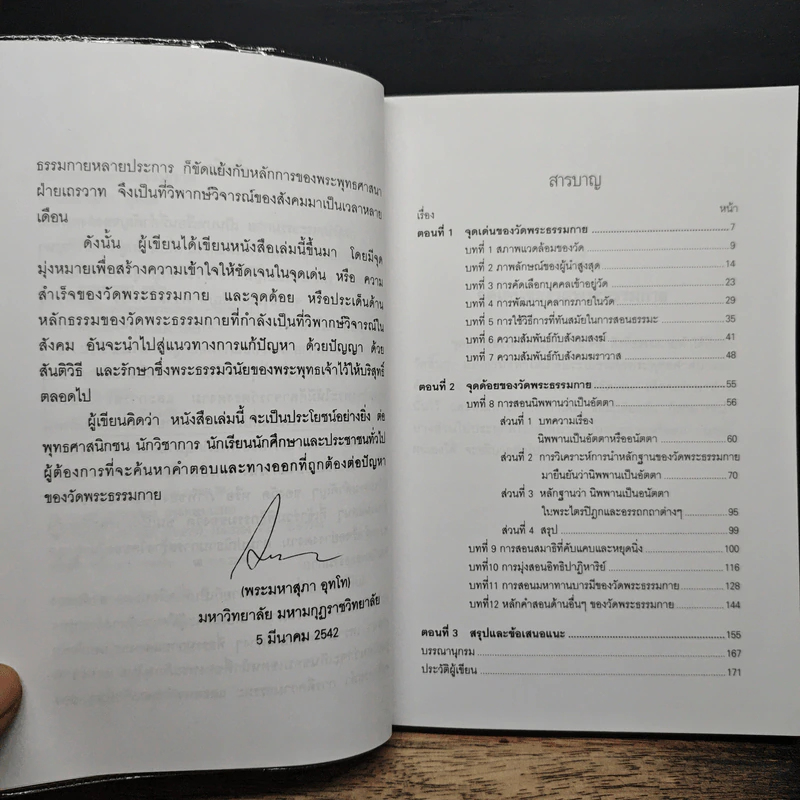 ธรรมกายหลายประการ ก็ขัดแย้งกับหลักการของพระพุทธศาสนา
ฝ่ายเถรวาท จึงเป็นที่วิพากษ์วิจารณ์ของสังคมมาเป็นเวลาหลาย
เดือน
ดังนั้น ผู้เขียนได้เขียนหนังสือเล่มนี้ขึ้นมา โดยมีจุด
มุ่งหมายเพื่อสร้างความเข้าใจให้ชัดเจนในจุดเด่น หรือ ความ
สำเร็จของวัดพระธรรมกาย และจุดด้อย หรือประเด็นด้าน
หลักธรรมของวัดพระธรรมกายที่กำลังเป็นที่วิพากษ์วิจารณ์ใน
สังคม อันจะนำไปสู่แนวทางการแก้ปัญหา ด้วยปัญญา ด้วย
สันติวิธี และรักษาซึ่งพระธรรมวินัยของพระพุทธเจ้าไว้ให้บริสุทธิ์
ตลอดไป
ผู้เขียนคิดว่า หนังสือเล่มนี้ จะเป็นประโยชน์อย่างยิ่ง ต่อ
พุทธศาสนิกชน นักวิชาการ นักเรียนนักศึกษาและประชาชนทั่วไป
ผู้ต้องการที่จะค้นหาคำตอบและทางออกที่ถูกต้องต่อปัญหา
ของวัดพระธรรมกาย
(พระมหาสุภา อุทโท)
มหาวิทยาลัย มหามกุฏราชวิทยาลัย
5 มีนาคม 2542
สารบาญ
เรื่อง หน้า
ตอนที่ 1 จุดเด่นของวัดพระธรรมกาย 7
บทที่ 1 สภาพแวดล้อมของวัด 9
บทที่ 2 ภาพลักษณ์ของผู้นำสูงสุด 14
บทที่ 3 การคัดเลือกบุคคลเข้าอยู่วัด 23
บทที่ 4 การพัฒนาบุคลากรภายในวัด 29
บทที่ 5 การใช้วิธีการที่ทันสมัยในการสอนธรรมะ 35
บทที่ 6 ความสัมพันธ์กับสังคมสงฆ์ 41
บทที่ 7 ความสัมพันธ์กับสังคมฆราวาส 48
ตอนที่ 2 จุดด้อยของวัดพระธรรมกาย 55
บทที่ 8 การสอนนิพพานว่าเป็นอัตตา 56
ส่วนที่ 1 บทความเรื่อง
นิพพานเป็นอัตตาหรืออนัตตา 60
ส่วนที่ 2 การวิเคราะห์การนำหลักฐานของวัดพระธรรมกาย
มายืนยันว่านิพพานเป็นอัตตา 70
ส่วนที่ 3 หลักฐานว่า นิพพานเป็นอนัตตา
ในพระไตรปิฎกและอรรถกถาต่างๆ 95
ส่วนที่ 4 สรุป 99
บทที่ 9 การสอนสมาธิที่คับแคบและหยุดนิ่ง 100
บทที่10 การมุ่งสอนอิทธิปาฏิหาริย์ 116
บทที่11 การสอนมหาทานบารมีของวัดพระธรรมกาย 128
บทที่12 หลักคำสอนด้านอื่นๆ ของวัดพระธรรมกาย 144
ตอนที่ 3 สรุปและข้อเสนอแนะ 155
บรรณานุกรม 167
ประวัติผู้เขียน 171